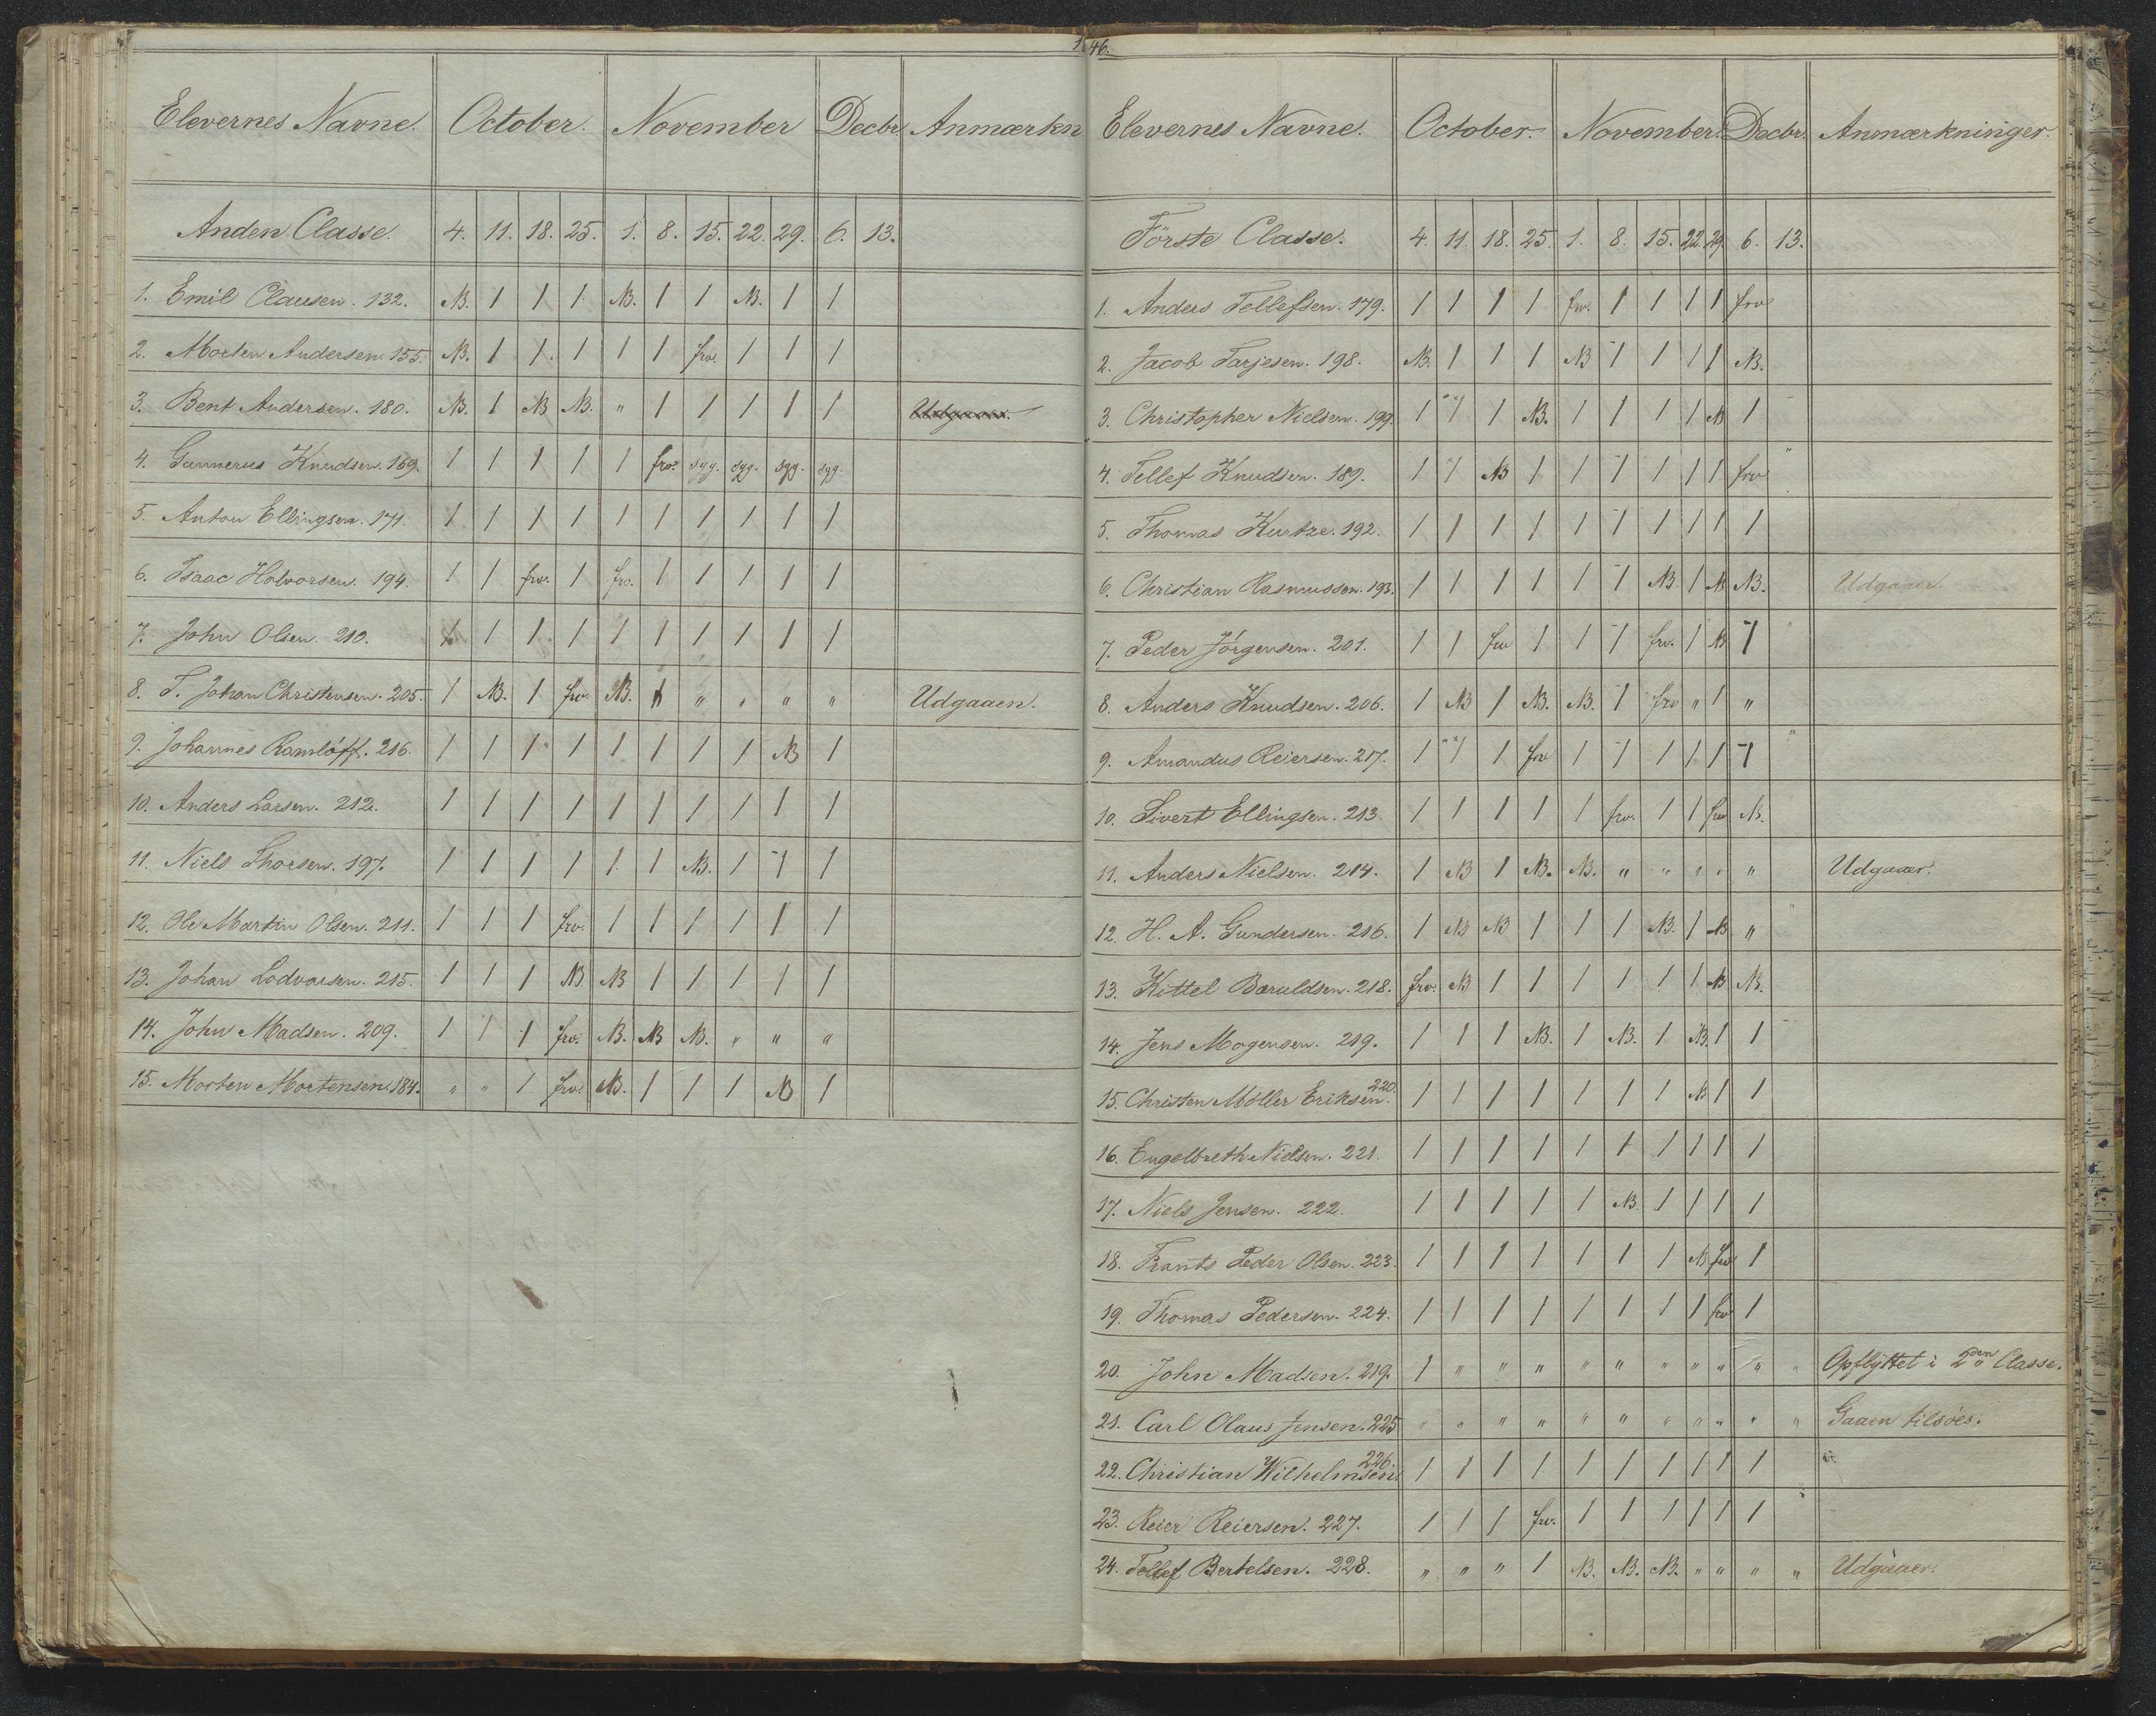 46.
Elevernes Navne. October. November Decbr Anmærkn
Anden Classe. 4. 11. 18. 25. 1. 8. 15. 22. 29. 6. 13.
1. Emil Clausen. 132. NB. 1 1 1 NB. 1 1 NB. 1 1
2. Morten Andersen. 155. NB. 1 1 1 1 1 frv. 1 1 1
3. Bent Andersen. 180. NB. 1 NB NB. " 1 1 1 1 1
4. Gunnerus Knudsen. 169. 1 1 1 1 1 frv. syg. syg. syg. syg.
5. Anton Ellingsen. 171. 1 1 1 1 1 1 1 1 1 1
6. Isaac Halvorsen. 194. 1 1 frv. 1 frv. 1 1 1 1 1
7. John Olsen. 210. 1 1 1 1 1 1 1 1 1 1
8. T. Johan Christensen. 205. 1 NB. 1 frv. NB. 1 " " " " Udgaaen.
9. Johannes Ramlöff. 216. 1 1 1 1 1 1 1 1 NB 1
10. Anders Larsen. 212. 1 1 1 1 1 1 1 1 1 1
11. Niels Thorsen. 197. 1 1 1 1 1 1 NB. 1 1 1
12. Ole Martin Olsen. 211. 1 1 1 frv. 1 1 1 1 1 1
13. Johan Lodvarsen. 215. 1 1 1 NB. NB 1 1 1 1 1
14. John Madsen. 209. 1 1 1 frv. NB. NB NB. " " "
15. Morten Mortensen. 184. " " 1 frv. NB. 1 1 1 NB 1
Elevernes Navne. October. November. Decbr. Anmærkninger.
Förste Classe. 4. 11. 18. 25. 1. 8. 15. 22. 29. 6. 13.
1. Anders Tellefsen. 179. 1 1 1 1 frv. 1 1 1 1 frv
2. Jacob Tarjesen. 198. NB. 1 1 1 NB 1 1 1 1 NB.
3. Christopher Nielsen. 199. 1 1 1 NB. 1 1 1 1 NB 1
4. Tellef Knudsen. 189. 1 1 NB 1 1 1 1 1 1 frv
5. Thomas Kurtze. 192. 1 1 1 1 1 1 1 1 1 1
6. Christian Rasmussen. 193. 1 1 1 1 1 1 NB. 1 NB NB. Udgaaer.
7. Peder Jörgensen. 201. 1 1 frv 1 1 1 frv. 1 NB 1
8. Anders Knudsen. 206. 1 NB 1 NB. NB. 1 frv " 1 "
9. Amandus Reiersen. 217. 1 1 1 frv 1 1 1 1 1 1
10. Sivert Ellingsen. 213. 1 1 1 1 1 frv. 1 1 frv NB.
11. Anders Nielsen. 214. 1 NB 1 NB. NB. " " " " " Udgaaer.
12. H. A. Gundersen. 216. 1 NB NB 1 1 1 NB. 1 NB "
13. Kittel Baruldsen. 218. frv. NB 1 1 1 1 1 1 NB NB.
14. Jens Mogensen. 219. 1 1 1 NB. 1 NB. 1 NB. 1 1
15. Christen Möller Eriksen. 220. 1 1 1 1 1 1 1 NB 1 1
16. Engelbreth Nielsen. 221. 1 1 1 1 1 1 1 1 1 1
17. Niels Jensen. 222. 1 1 1 1 1 NB. 1 1 1 1
18. Frants Peder Olsen. 223. 1 1 1 1 1 1 1 NB frv 1
19. Thomas Pedersen. 224. 1 1 1 1 1 1 1 1 frv 1
20. John Madsen. 219. 1 " " " " " " " " " " Opflyttet i 2den Classe.
21. Carl Olaus Jensen. 225 " " " " " " " " " " " Gaaen tilsöes.
22. Christian Wilhelmsen 226. 1 1 1 1 1 1 1 1 1 1
23. Reier Reiersen. 227. 1 1 1 frv. 1 1 1 1 1 1
24. Tellef Bertelsen. 228. " " " 1 NB. NB. NB. " " " " Udgaaer.